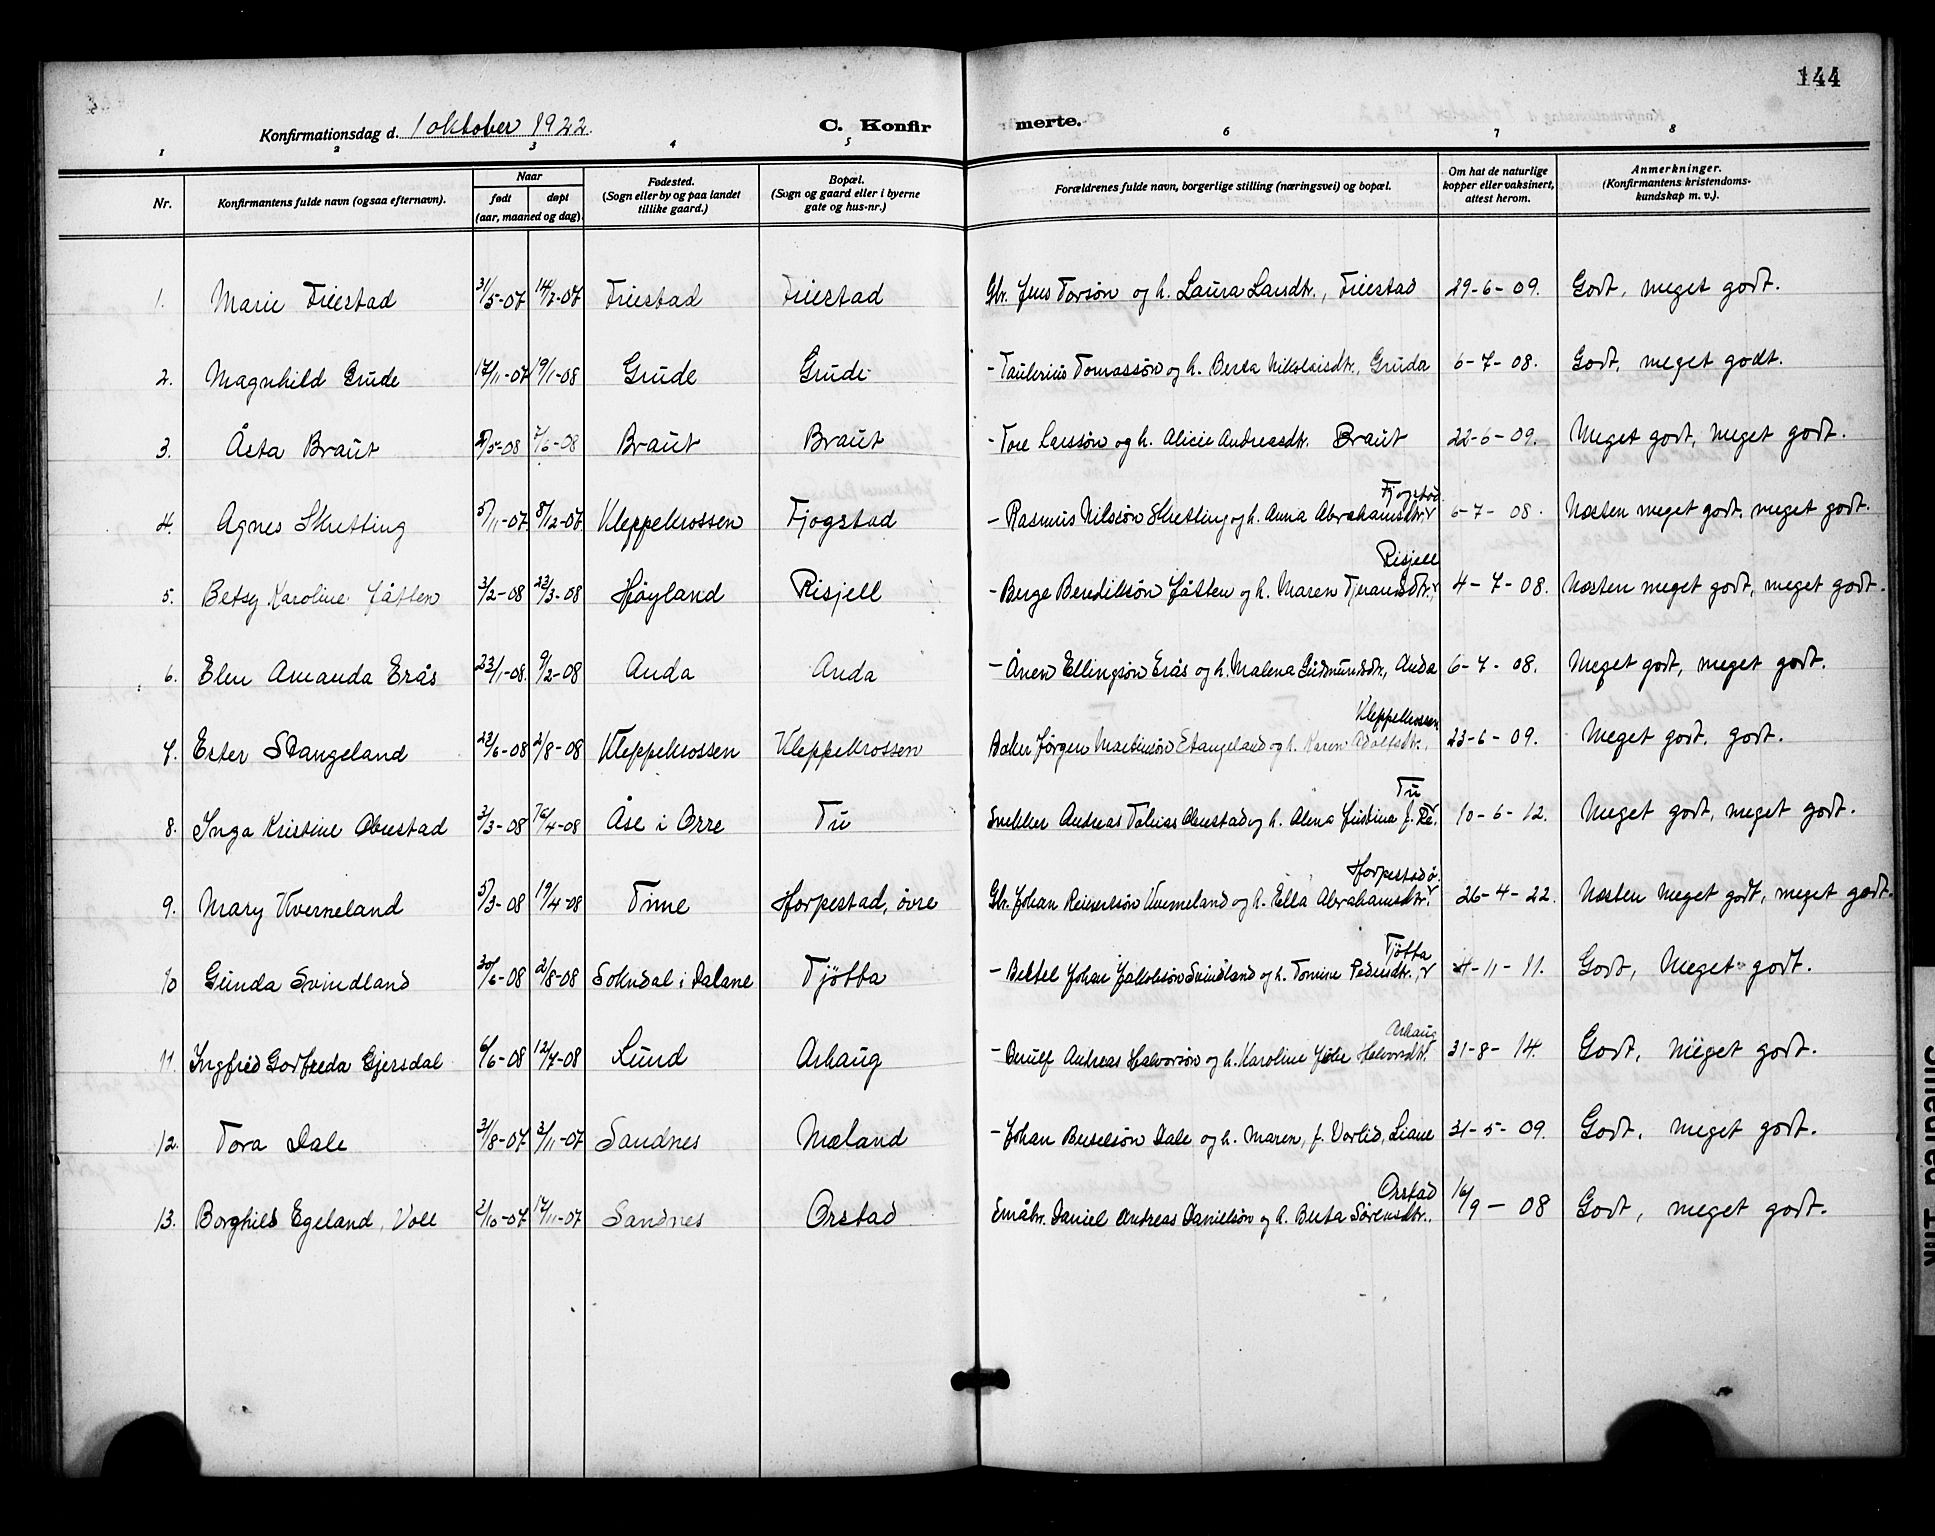 144
Konfirmationsdag d. 1 oktober 1922. C. Konfir merte.
1 2 3 4 5 6 7 8
Nr. Konfirmantens fulde navn (ogsaa efternavn). Naar født døpt (aar, maaned og dag). Fødested. (Sogn eller by og paa landet tillike gaard.) Bopæl. (Sogn og gaard eller i byerne gate og hus-nr.) Forældrenes fulde navn, borgerlige stilling (næringsvei) og bopæl. Om hat de naturlige kopper eller vaksinert, attest herom. Anmerkninger. (Konfirmantens kristendomskundskap m. v.).
1. Marie Friestad 31/5-07 14/7-07 Friestad Friestad Gbr. Jens Torsøn og h. Laura Larsdtr., Friestad 29-6-09. Godt, meget godt.
2. Magnhild Grude 17/11-07 19/1-08 Grude Grude - Taulerius Tomassøn og h. Berta Nikolaisdtr., Gruda 6-7-08. Godt, meget godt.
3. Åsta Braut /5-08 7/6-08 Braut Braut - Tore Larssøn og h. Alice Andreasdtr. Braut 22-6-09. Meget godt, meget godt.
4. Agnes Skretting 5/11-07 8/12-07 Kleppekrossen Fjogstad - Rasmus Nilssøn Skretting og h. Anna Abrahamsdtr. Fjogstad 6-7-08. Næsten meget godt, meget godt.
5. Betsy Karoline Jåtten 3/2-08 23/3-08 Høyland Risjell - Berge Bendiktsøn Jåtten og h. Maren Tjeransdtr., Risjell 4-7-08. Næsten meget godt, meget godt.
6. Elen Amanda Erås 23/1-08. 9/2-08 Anda Anda - Ånen Ellingsøn Erås og h. Malena Gudmundsdtr., Anda 6-7-08. Meget godt, meget godt.
7. Ester Stangeland 23/6-08 2/8-08 Kleppekrossen Kleppekrossen Baker Jørgen Martinsøn Stangeland og h. Karen Adolfsdtr., Kleppekrossen 23-6-09. Meget godt, godt.
8. Inga Kristine Obrestad 3/3-08 16/4-08 Åse i Orre Tu Snekker Andreas Tobias Obrestad og h. Alena Justina f. Re. Tu 10-6-12. Meget godt, meget godt.
9. Mary Kverneland 5/3-08 19/4-08 Time Horpestad, øvre Gbr. Johan Reinertsøn Kverneland og h. Ella Abrahamsdtr. Horpestad ø. 26-4-22. Næsten meget godt, meget godt.
10 Gunda Svindland 30/6-08 2/8-08 Sokndal i Dalane Tjøtta - Bertel Johan Jakobsøn Svindland og h. Tomine Pedersdtr., Tjøtta 4-11-11. Godt, meget godt.
11. Ingfrid Godfreda Gjersdal 6/6-08 12/7-08 Lund Arhaug - Berulf Andreas Halvorsøn og h. Karoline Halvorsdtr. Arhaug 31-8-14. Godt, meget godt.
12. Tora Dale 3/8-07 3/11-07 Sandnes Mæland - Johan Bertelsøn Dale og h. Maren, f. Varlid, Liane 31-5-09. Godt, meget godt.
13. Borghild Egeland, Voll 2/10-07 17/11-07 Sandnes Orstad Småbr. Daniel Andreas Danielsøn og h. Berta Sørensdtr. Orstad 16/9-08 Godt, meget godt.